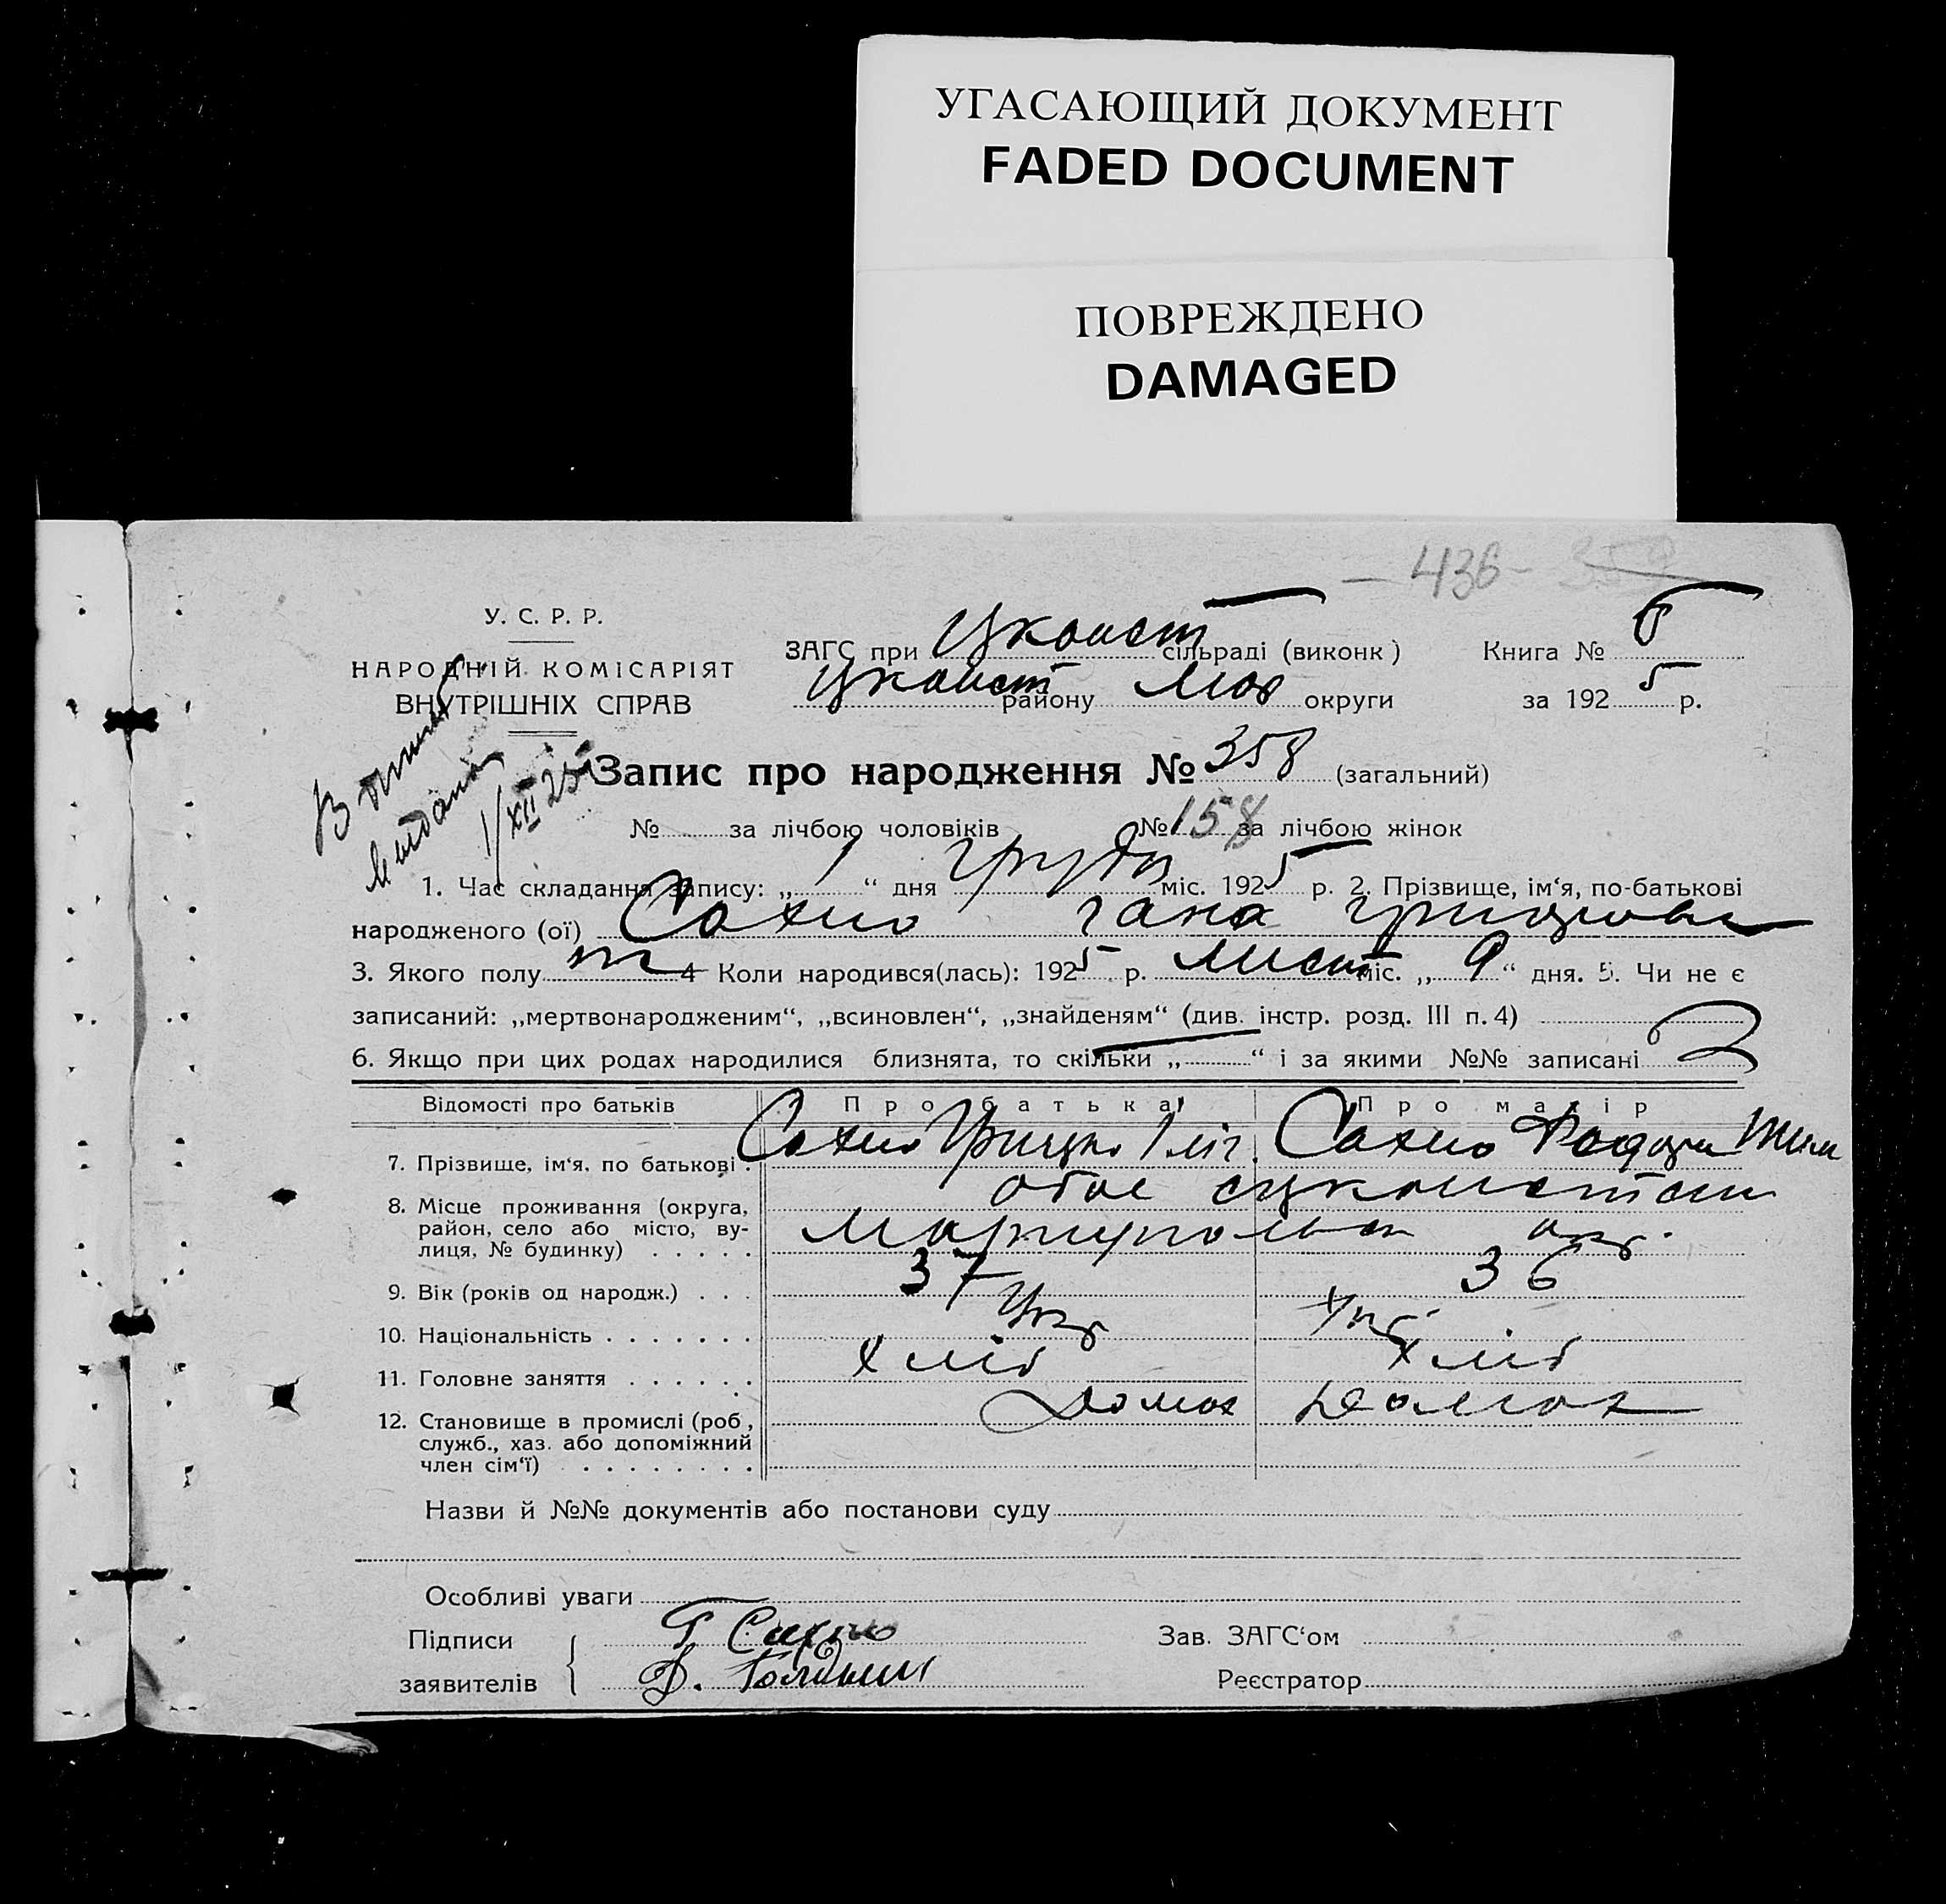 УГАСАЮЩИЙ ДОКУМЕНТ
FADED DOCUMENT
ПОВРЕЖДЕНО
DAMAGED
— 436 - 359
У. С. Р. Р.
НАРОДНІЙ КОМІСАРІЯТ
ВНУТРІШНІХ СПРАВ
ЗАГС при Цконст сільраді (виконк) Книга № 6
Цконст району Мар округи за 1925 р.
видани
1/XII 25
Запис про народження № 358 (загальний)
№ за лічбою чоловіків № 158 за лічбою жінок
1. Час складання запису: „ 1 “ дня грудн міс. 1925 р. 2. Прізвище, ім‘я, по-батькові
народженого (ої) Сахно гана грицкови
3. Якого полу ж 4 Коли народився(лась): 1925 р. лист міс. „ 9 “ дня. 5. Чи не є
записаний: „мертвонародженим“, „всиновлен“, „знайденям“ (див. інстр. розд. III п. 4)
6. Якщо при цих родах народилися близнята, то скільки „ — “ і за якими №№ записані
Відомості про батьків Про батька Про матір
7. Прізвище, ім‘я, по батькові. Сахно Грицко Сахно
8. Місце проживання (округа, район, село або місто, вулиця, № будинку) обоє
Мариупольск окр.
9. Вік (років од народж.) . . . 37 36
10. Національність . . . . . . . Укр Укр
11. Головне заняття . . . . . . хліб хліб
12. Становище в промислі (роб, служб., хаз. або допоміжний член сім‘ї) . . . . . . . . Домог Домог
Назви й №№ документів або постанови суду
Особливі уваги
Підписи Г Сахно Зав. ЗАГС‘ом
заявителів Реєстратор